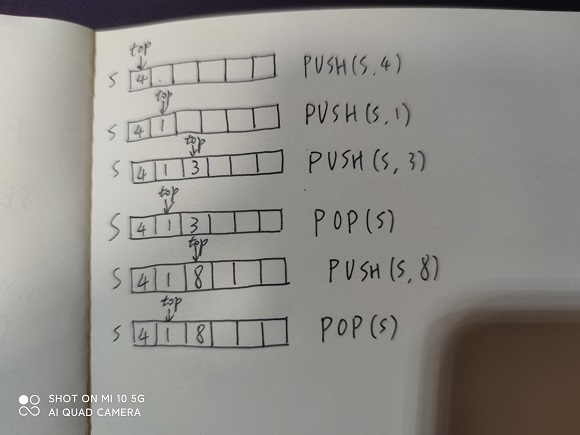 top
S 4 PUSH(S,4)
top
S 4 1 PUSH(S,1)
top
S 4 1 3 PUSH(S,3)
top
S 4 1 3 POP(S)
top
S 4 1 8 PUSH(S,8)
top
S 4 1 8 POP(S)
SHOT ON MI 10 5G
AI QUAD CAMERA